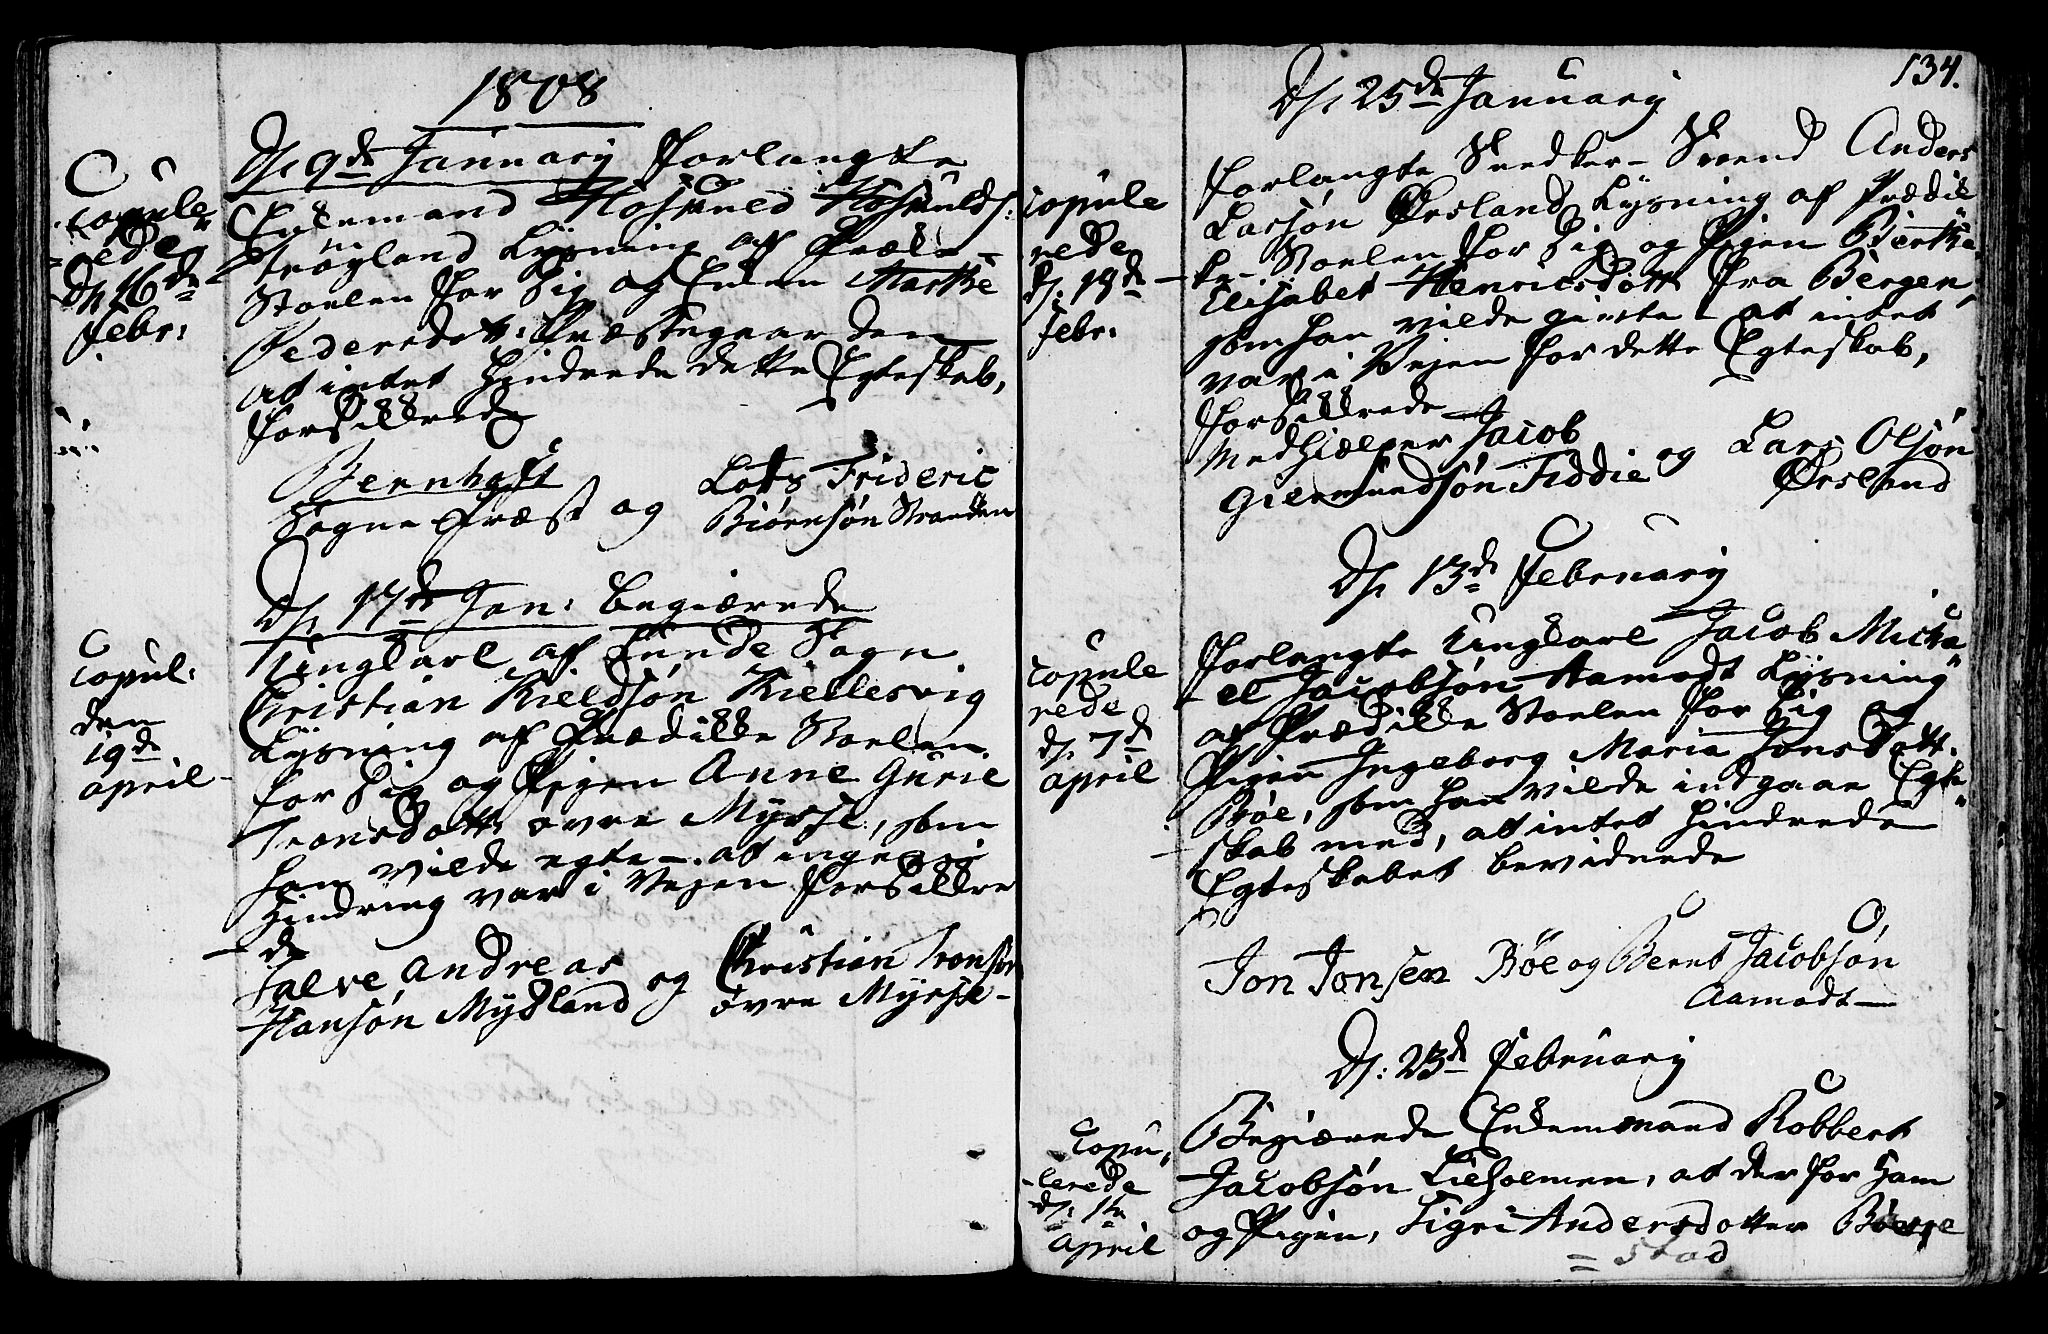 1808
Copule
rede
d. 16de
Febr:
D. 9de January forlangte
Enkemand Hoskuld Hoskulds:
Trøgland Lysning af Prædike
Stoelen for Sig og Enken Marthe
Pedersdatt: Præstegaarden
at intet hindrede dette Egteskab,
forsikkrede
Bernhoft
Sogne Præst og
Lots Frideric
Biørnsøn Stranden
D. 17de Jan: begiærede
Copul:
den
19de
April
Ungkarl af Lunde Sogn
Christian Kieldsøn Kiellesvig
Lysning af Prædikke Stoelen
for Sig og Pigen Anne Gurie
Tronsdatt: øvre Mysse, som
han vilde egte - at ingen
Hindring var i Vejen forsikkre
de
Salve Andreas
Hansøn Mydland og
Christian Tronsøn
øvre Mysse -
134.
D. 25de January
Copule
rede
d. 18de
Febr:
forlangte Snedker Svend Anders
Larsøn Ørsland Lysning af Prædik
ke Stoelen for Sig og Pigen Birthe
Elisabet Henricsdott fra Bergen,
som han vilde givte - at intet
var i Vejen for dette Egteskab,
forsikkrede
Medhielper Jacob
Giermundsøn Fiddie og
Lars Olsøn
Ørsland
D. 13de February
Copule
rede
d. 7de
April
forlangte Ungkarl Jacob Micha
el Jacobsøn Aamodt Lysning
af Prædikke Stoelen for Sig og
Pigen Ingeborg Maria Jonsdatt.
Bøe, som han vilde indgaae Egte
skab med, at intet hindrede
Egteskabet bevidnede
Jon Jonsen Bøe og Bernt Jacobsøn
Aamodt
D: 23de February
Copu
lerede
d: 1te
April
Begiærede Enkemand Robbert
Jacobsøn Lieholmen, at der for ham
og Pigen, Sigri Andersdotter
stad